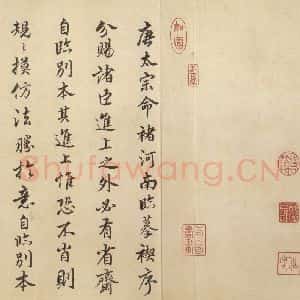 唐太宗命諸河南臨摹禊序
分賜諸臣進上之外必有省齋
自臨別本其進上惟恐不肖則
規〻摸仿法勝於意自臨別本
Shufawang.CN